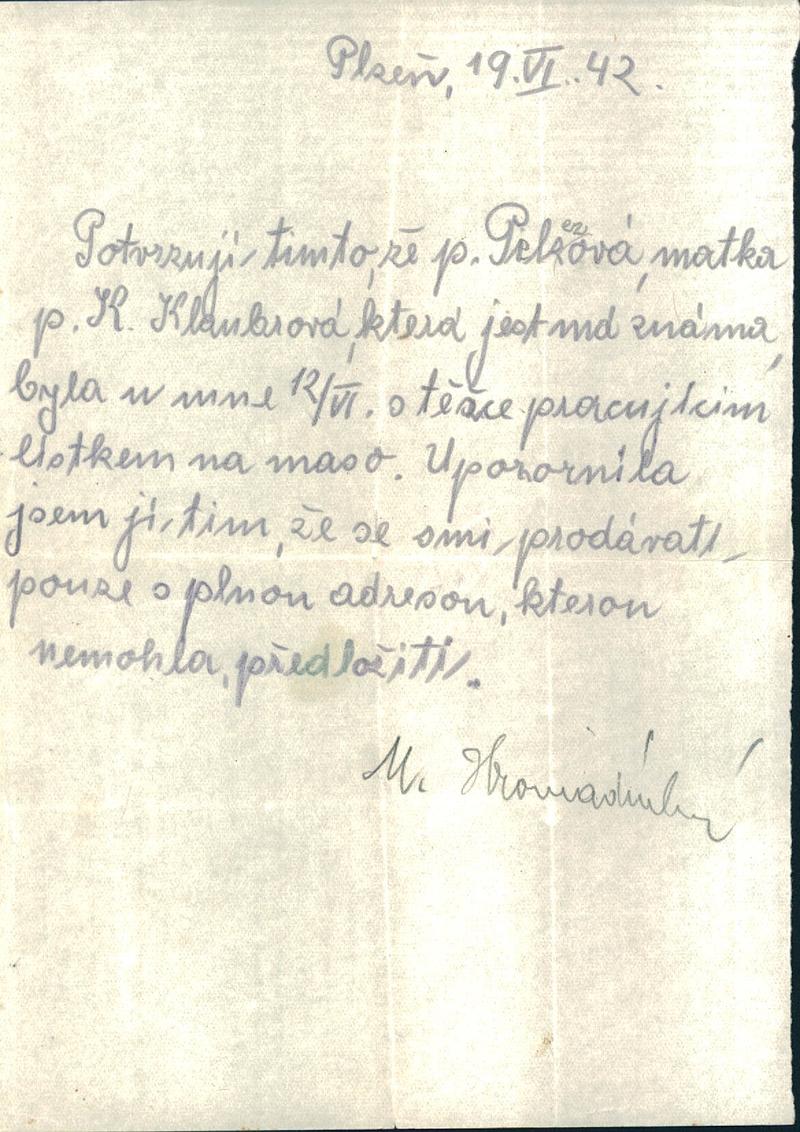 Plzeň, 19.VI. 42.
Potvrzuji, tímto, že p. Pelzová, matka
p. K. Klaubrová, která jest mě známa,
byla u mne 12/VI. s těžce pracujícím
lístkem na maso. Upozornila
jsem jí, tim, že se smí, prodávati,
pouze s plnou adresou, kterou
nemohla, předložiti.
M.